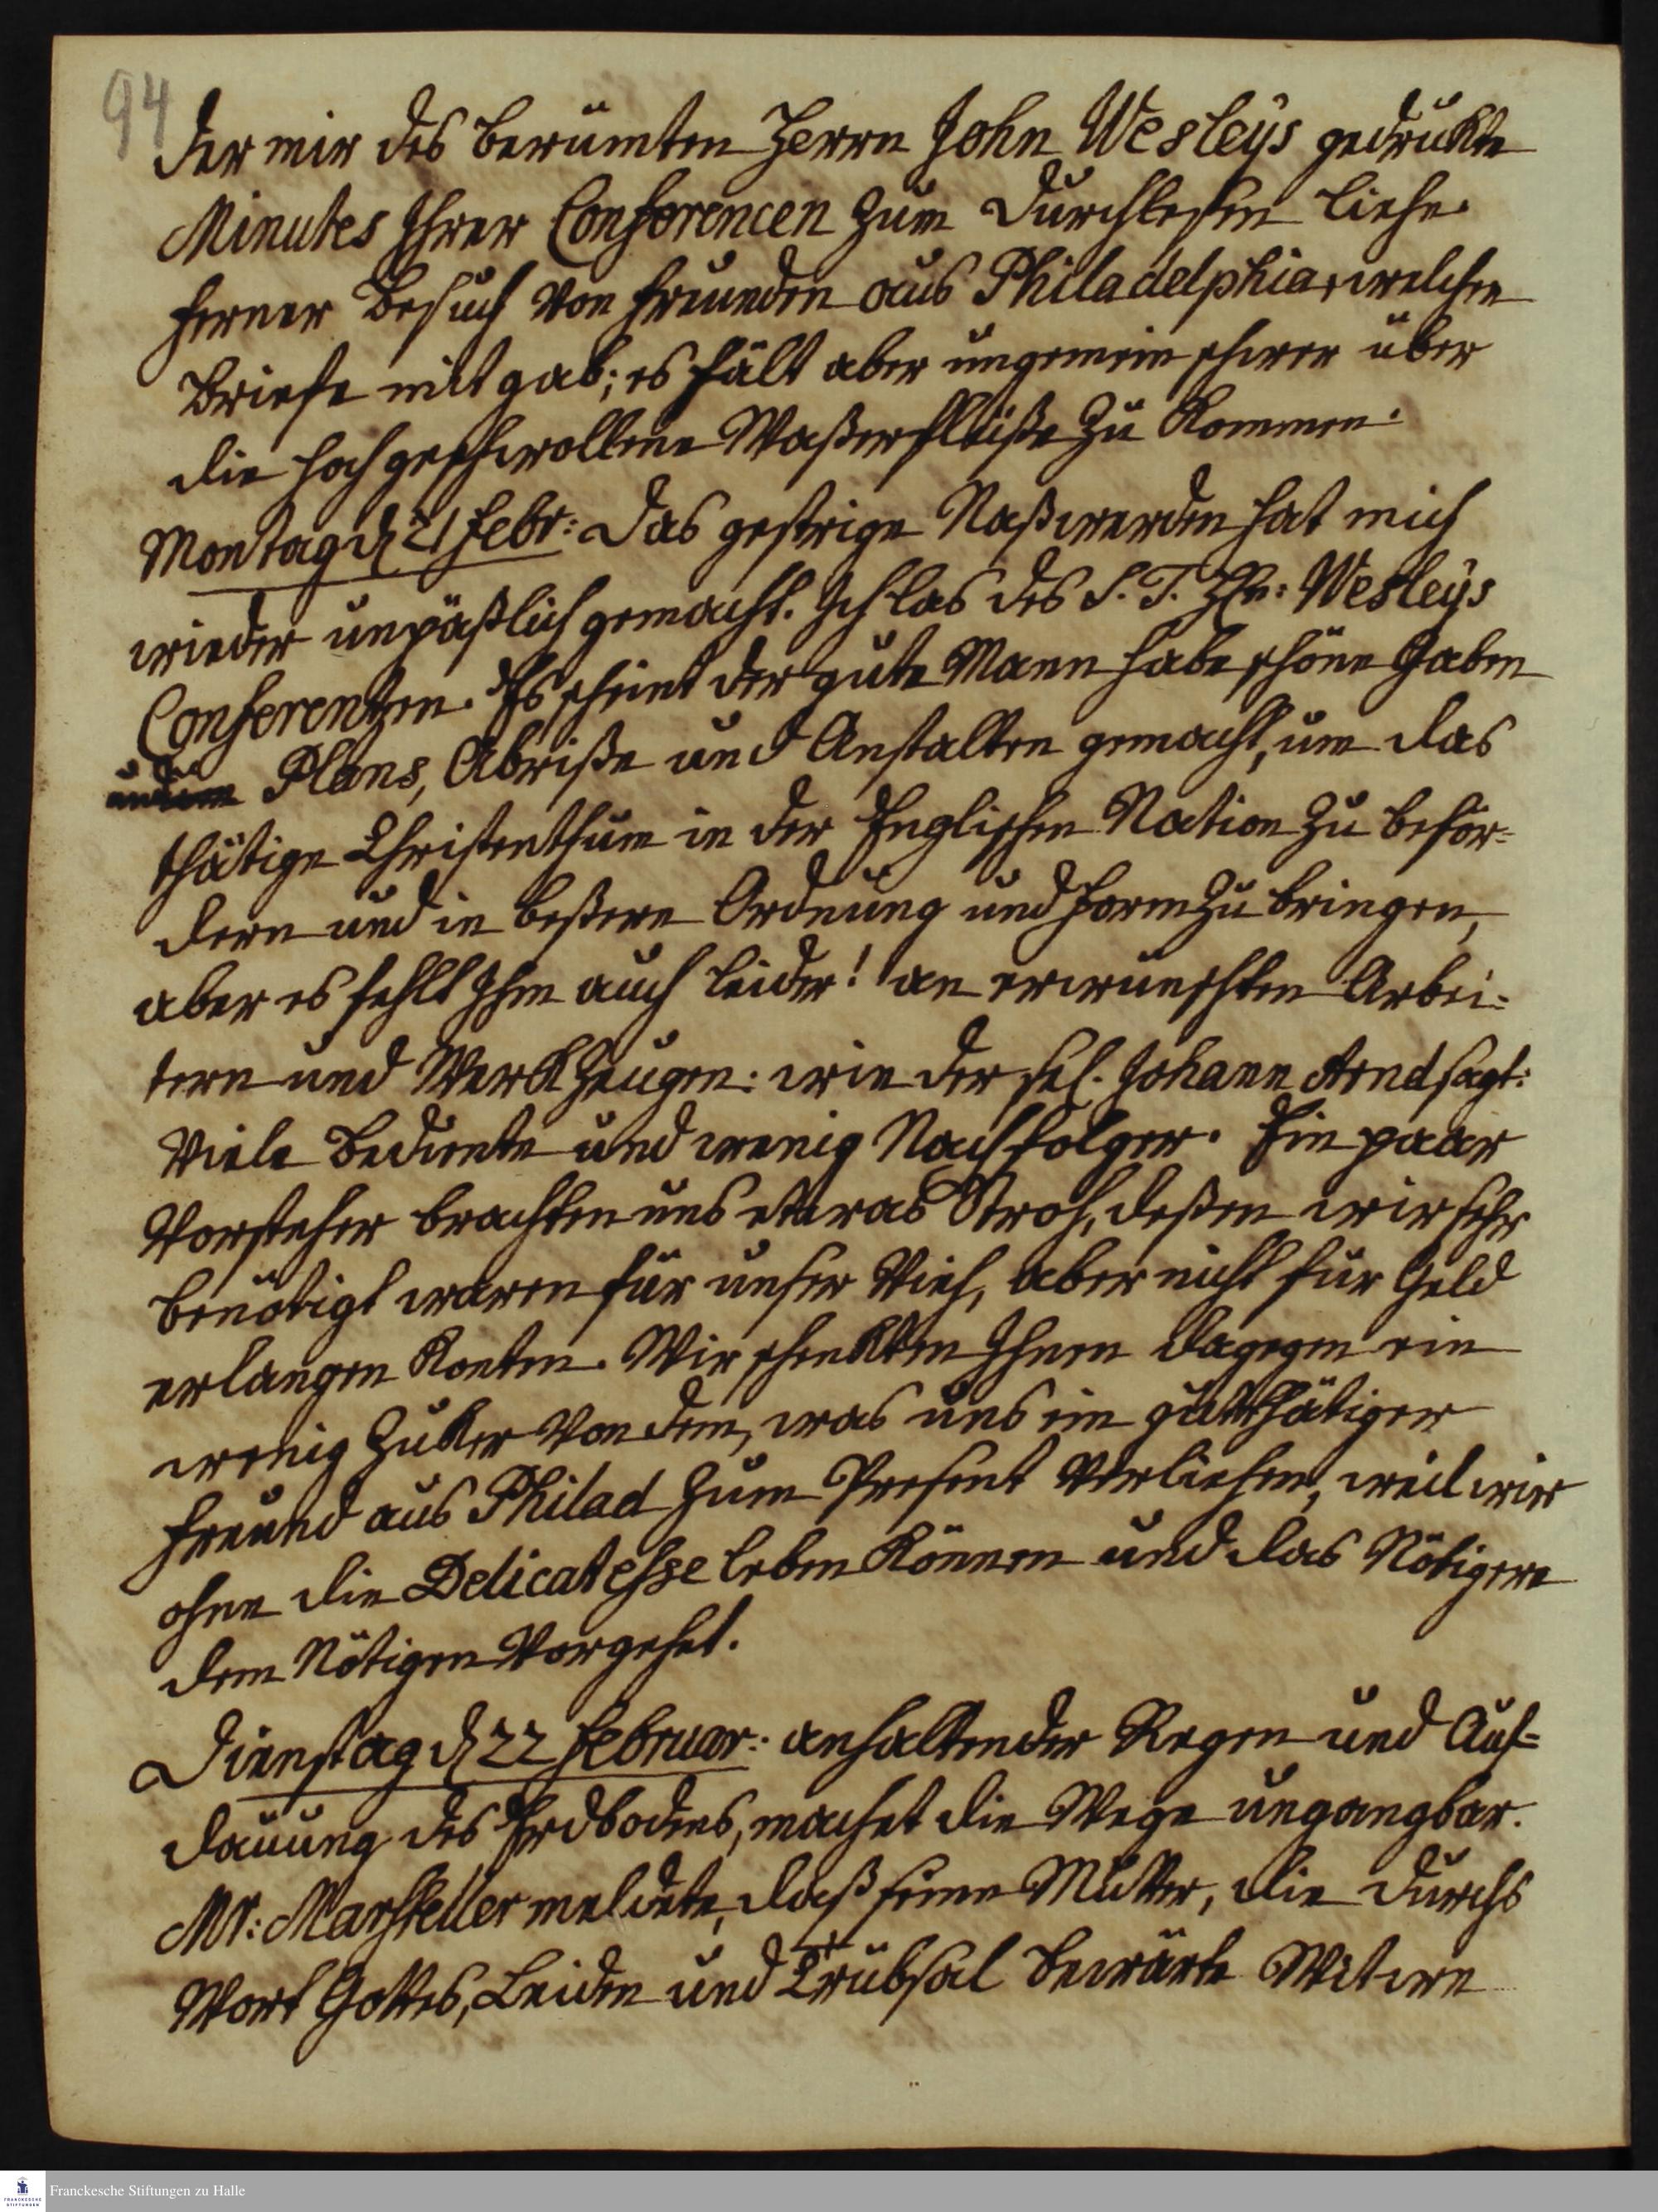 94
der mir des berümten Herrn John Wesleys gedrukte
Minutes Ihrer Conferencen zum Durchlesen liehe.
ferner Besuch von freunden aus Philadelphia, welchen
Briefe mit gab; es hält aber ungemein schwer über
die hochgeschwollene Waßerflüße zu kommen.
Montag d 21 Febr: Das gestrige Naßwerden hat mich
wieder unpäßlich gemacht. Ich las des S. T. Hn: Wesleys
Conferentzen. Es scheint der gute Mann habe schöne Gaben
u Plans, Abriße und Anstalten gemacht, um das
thätige Christenthum in der Englischen Nation zu beför-
dern und in beßere Ordnung und Form zu bringen,
aber es fehlt Ihm auch leider! an erwünschten Arbei-
tern und Werkzeugen: wie der sel. Johann Arnd sagt:
Viele Bediente und wenig Nachfolger. Ein paar
Vorsteher brachten uns etwas Stroh, deßen wir sehr
benötigt waren für unser Vieh, aber nicht für Geld
erlangen konten. Wir schenkten Ihnen dagegen ein
wenig Zuker von dem, was uns ein gutthätiger
Freund aus Philad zum Present verliehen, weil wir
ohne die Delicatesse leben können und das Nötigere
dem Nötigen vorgehet.
Dienstag d 22 Februar: anhaltender Regen und Auf-
dauung des Erdbodens, machet die Wege ungangbar.
Mr: Marsteller meldete, daß seine Mutter, die durchs
Wort Gottes, Leiden und Trübsal bewärte Witwe
Franckesche Stiftungen zu Halle